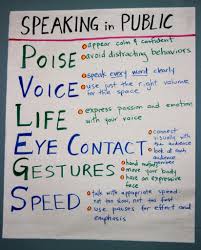 SPEAKING in PUBLIC
POISE
appear calm & confident
avoid distracting behaviors
VOICE
speak every word clearly
use just the right volume
for the space
LIFE
express passion and emotion
with your voice
EYE CONTACT
connect
visually with
the audience
look at each
audience
GESTURES
hand
move your body
have an expressive
face
SPEED
talk with appropriate speed
not too slow, not too fast
use pauses for effect and
emphasis